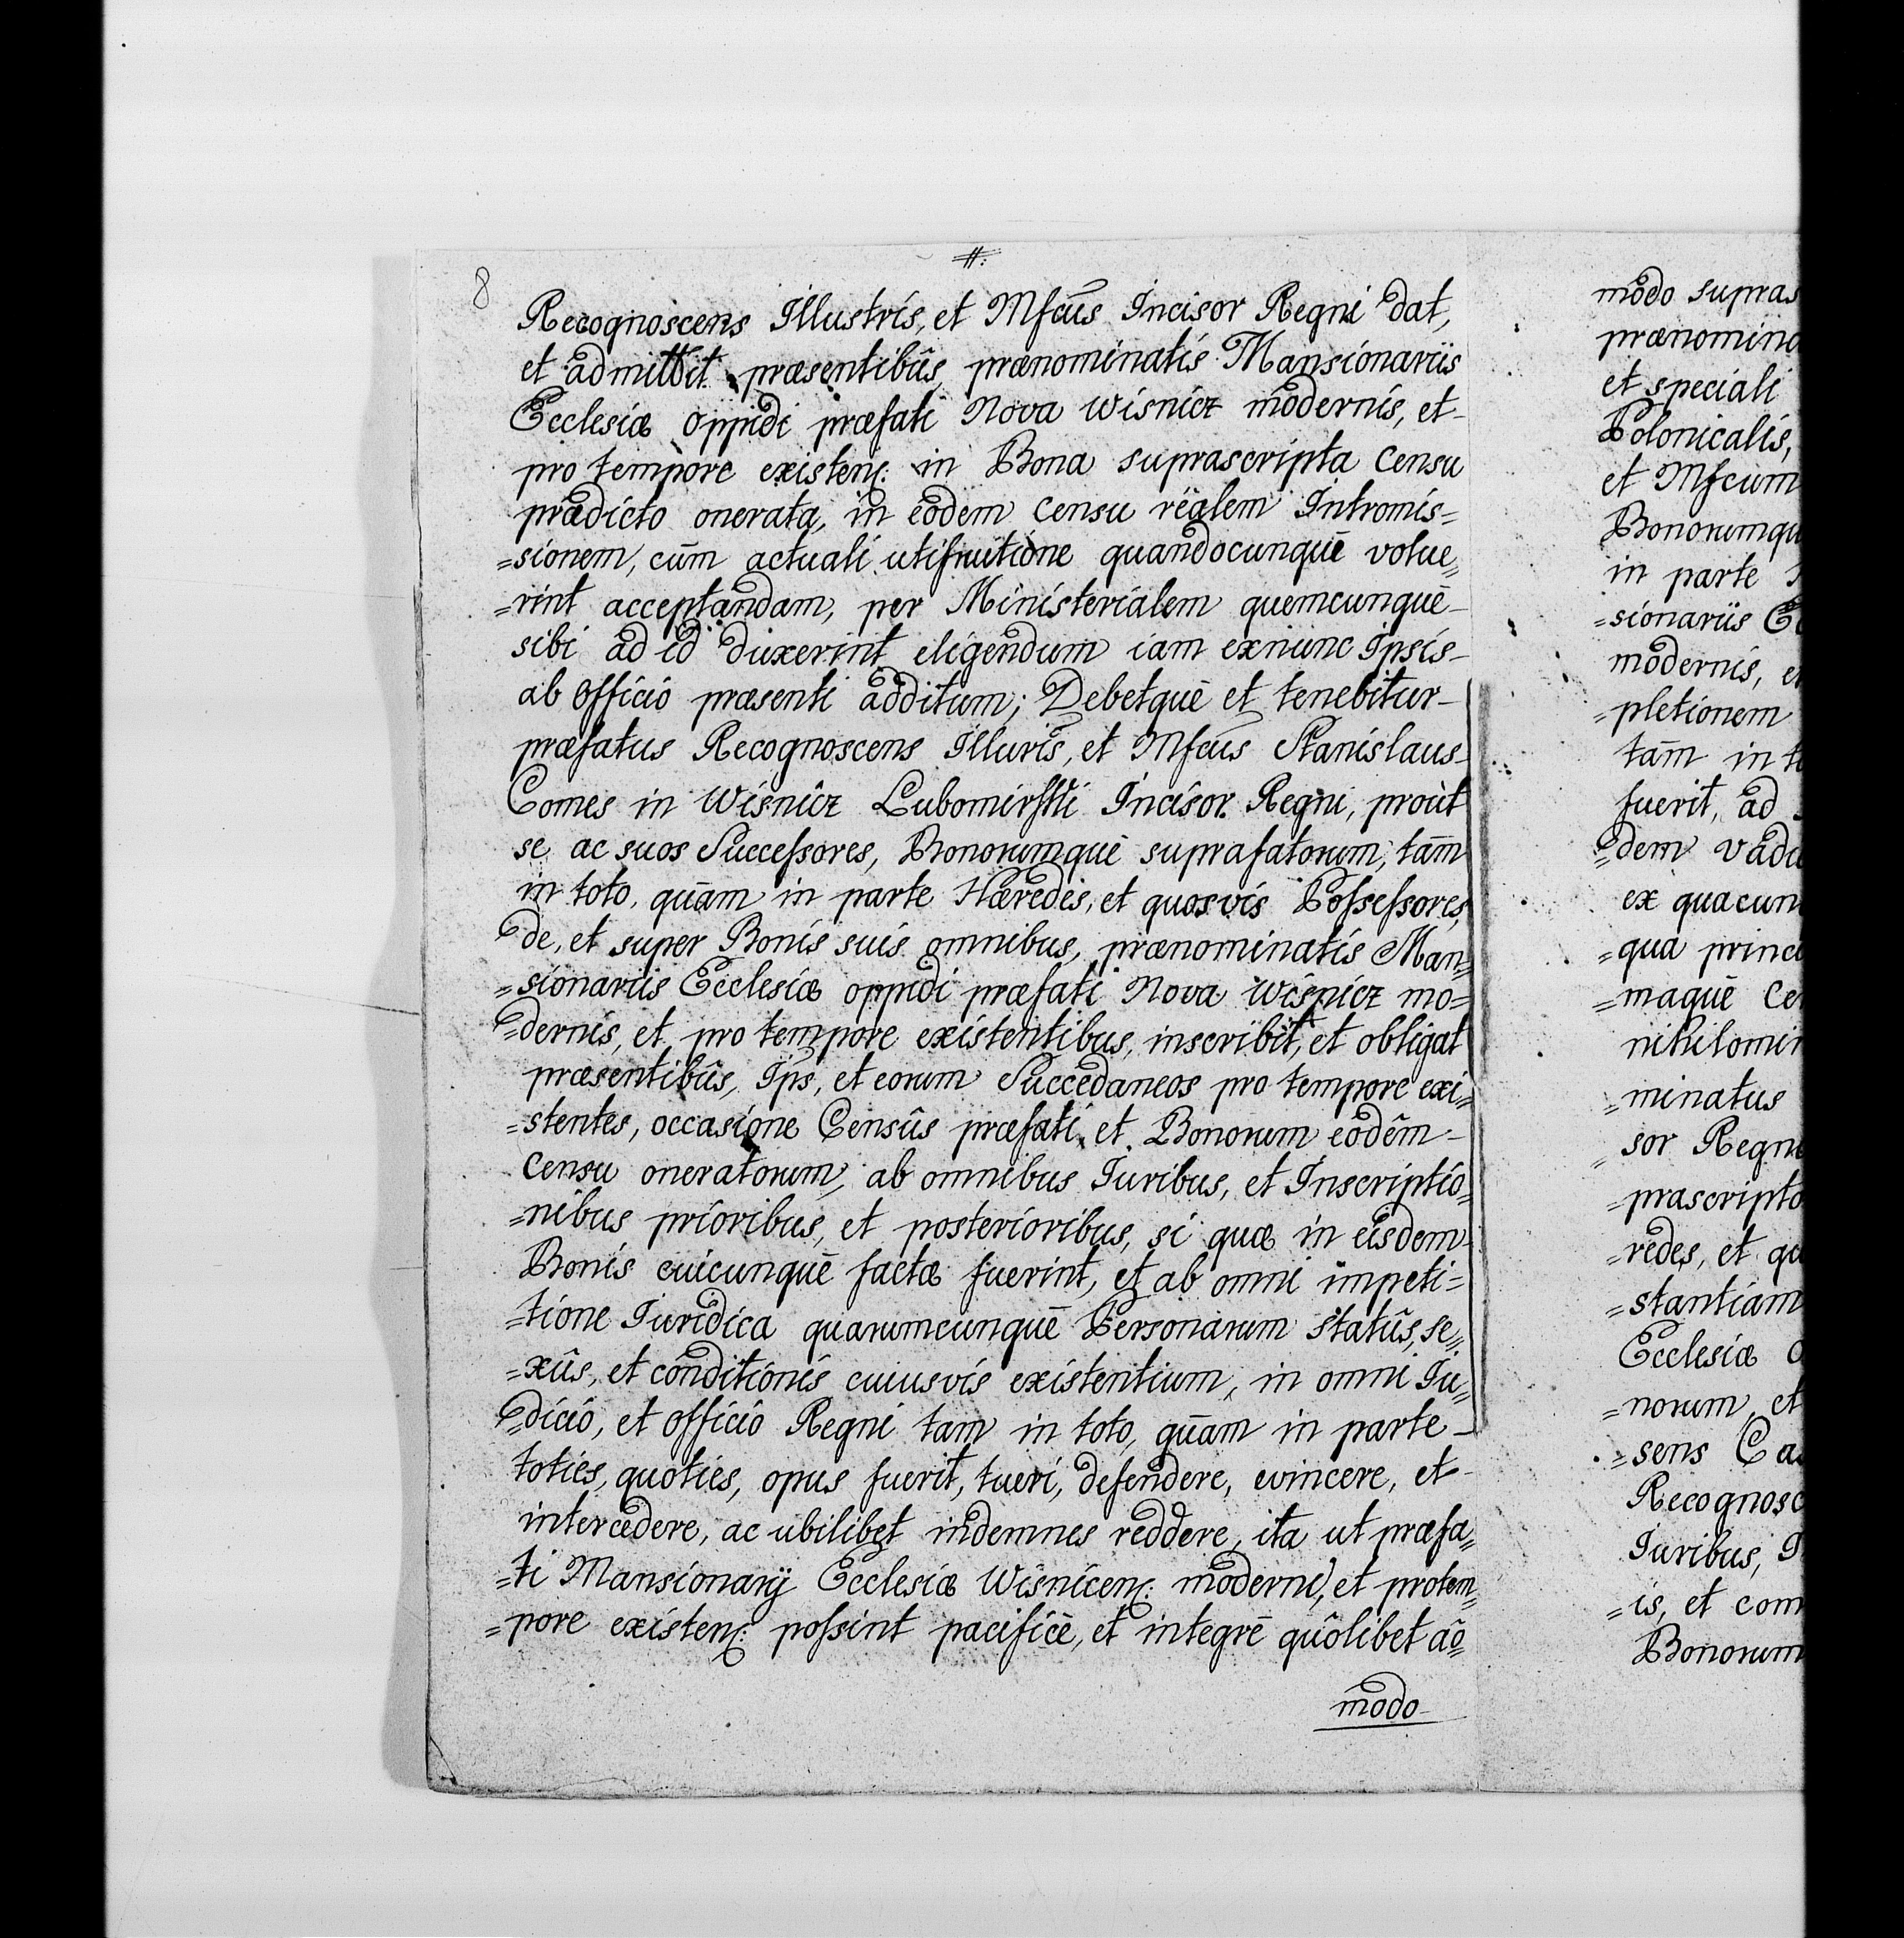 #:
8
Recognoscens Illustris, et Mfcus Incisor Regni dat,
et admittit præsentibûs prænominatis Mansionariis
Ecclesiæ oppidi præfati Nova Wisnicz modernis, et-
pro tempore existen: in Bona suprascripta Censu
prædicto onerata, in eodem censu rëalem Intromis=
=sionem, cum actuali utifruitione quandocunquē volue=
=rint acceptandam, per Ministerialem quemcunquē-
sibi ad id duxerint eligendum iam exnunc Ipsis-
ab officio præsenti additum; Debetquē et tenebitur-
præfatus Recognoscens Illuris, et Mfcus Stanislaus-
Comes in Wisnicz Lubomirski Incisor Regni, proùt
se ac suos Successores, Bonorumquē suprafatorum, tam
in toto, quam in parte Hæredes, et quosvis Possessores,
de, et super Bonis suis omnibus, prænominatis Man=
=sionariis Ecclesiæ oppidi præfati Nova Wisnicz mo=
=dernis, et pro tempore existentibus, inscribit, et obligat
præsentibûs, Ips, et eorum Succedaneos pro tempore exi=
=stentes, occasione Censûs præfati, et Bonorum eodêm-
censu oneratorum, ab omnibus Iuribus, et Inscriptio=
=nibus prioribus, et posterioribus, si quæ in eisdem-
Bonis cuicunquē factæ fuerint, et ab omni impeti=
=tione Iuridica quarumcunquē Personarum statûs, se=
=xûs, et conditionis cuiusvis existentium, in omni Iu=
=dicio, et officio Regni tam in toto, quam in parte-
toties, quoties, opus fuerit, tueri, defendere, evincere, et-
intercedere, ac ubilibet indemnes reddere, ita ut præfa=
=ti Mansionarÿ Ecclesiæ Wisnicen: moderni, et protem=
=pore existen: possint pacificē, et integrē quôlibet aō=
modo
modo supras
prænomina
et speciali
Polonicalis,
et Mfcum
Bonorumqu
in parte
=sionariis Ec
modernis, et
=pletionem
tam in to
fuerit, ad
=dem vadi
ex quacun
=qua princi
=maquē cen
nihilomin
=minatus
=sor Regni
=prascripto
=redes, et qu
=stantiam
Ecclesiæ o
=norum, et
=sens Ca
Recognosc
Iuribus, I
=is, et com
Bonorum